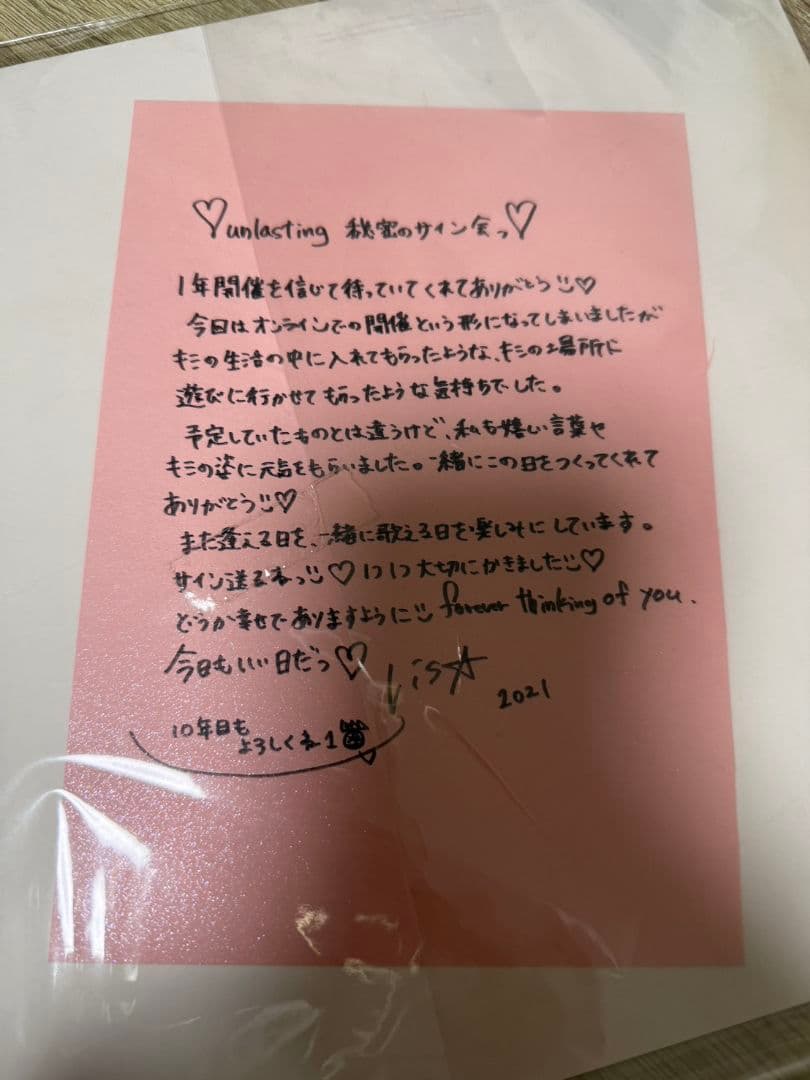 ♡unlasting 秘密のサイン会っ♡
1年開催を信じて待っていてくれてありがとう♡
今日はオンラインでの開催という形になってしまいましたが
キミの生活の中に入れてもらったような、キミの場所に
遊びに行かせてもらったような気持ちでした。
予定していたものとは違うけど、私も嬉しい言葉や
キミの姿に元気をもらいました。一緒にこの日をつくってくれて
ありがとう♡
また逢える日を、一緒に歌える日を楽しみにしています。
サイン送るねっ♡1つ1つ大切にかきました♡
どうか幸せでありますように forever thinking of you.
今日もいい日だっ♡ LiS☆
2021
10年目も
よろしくね